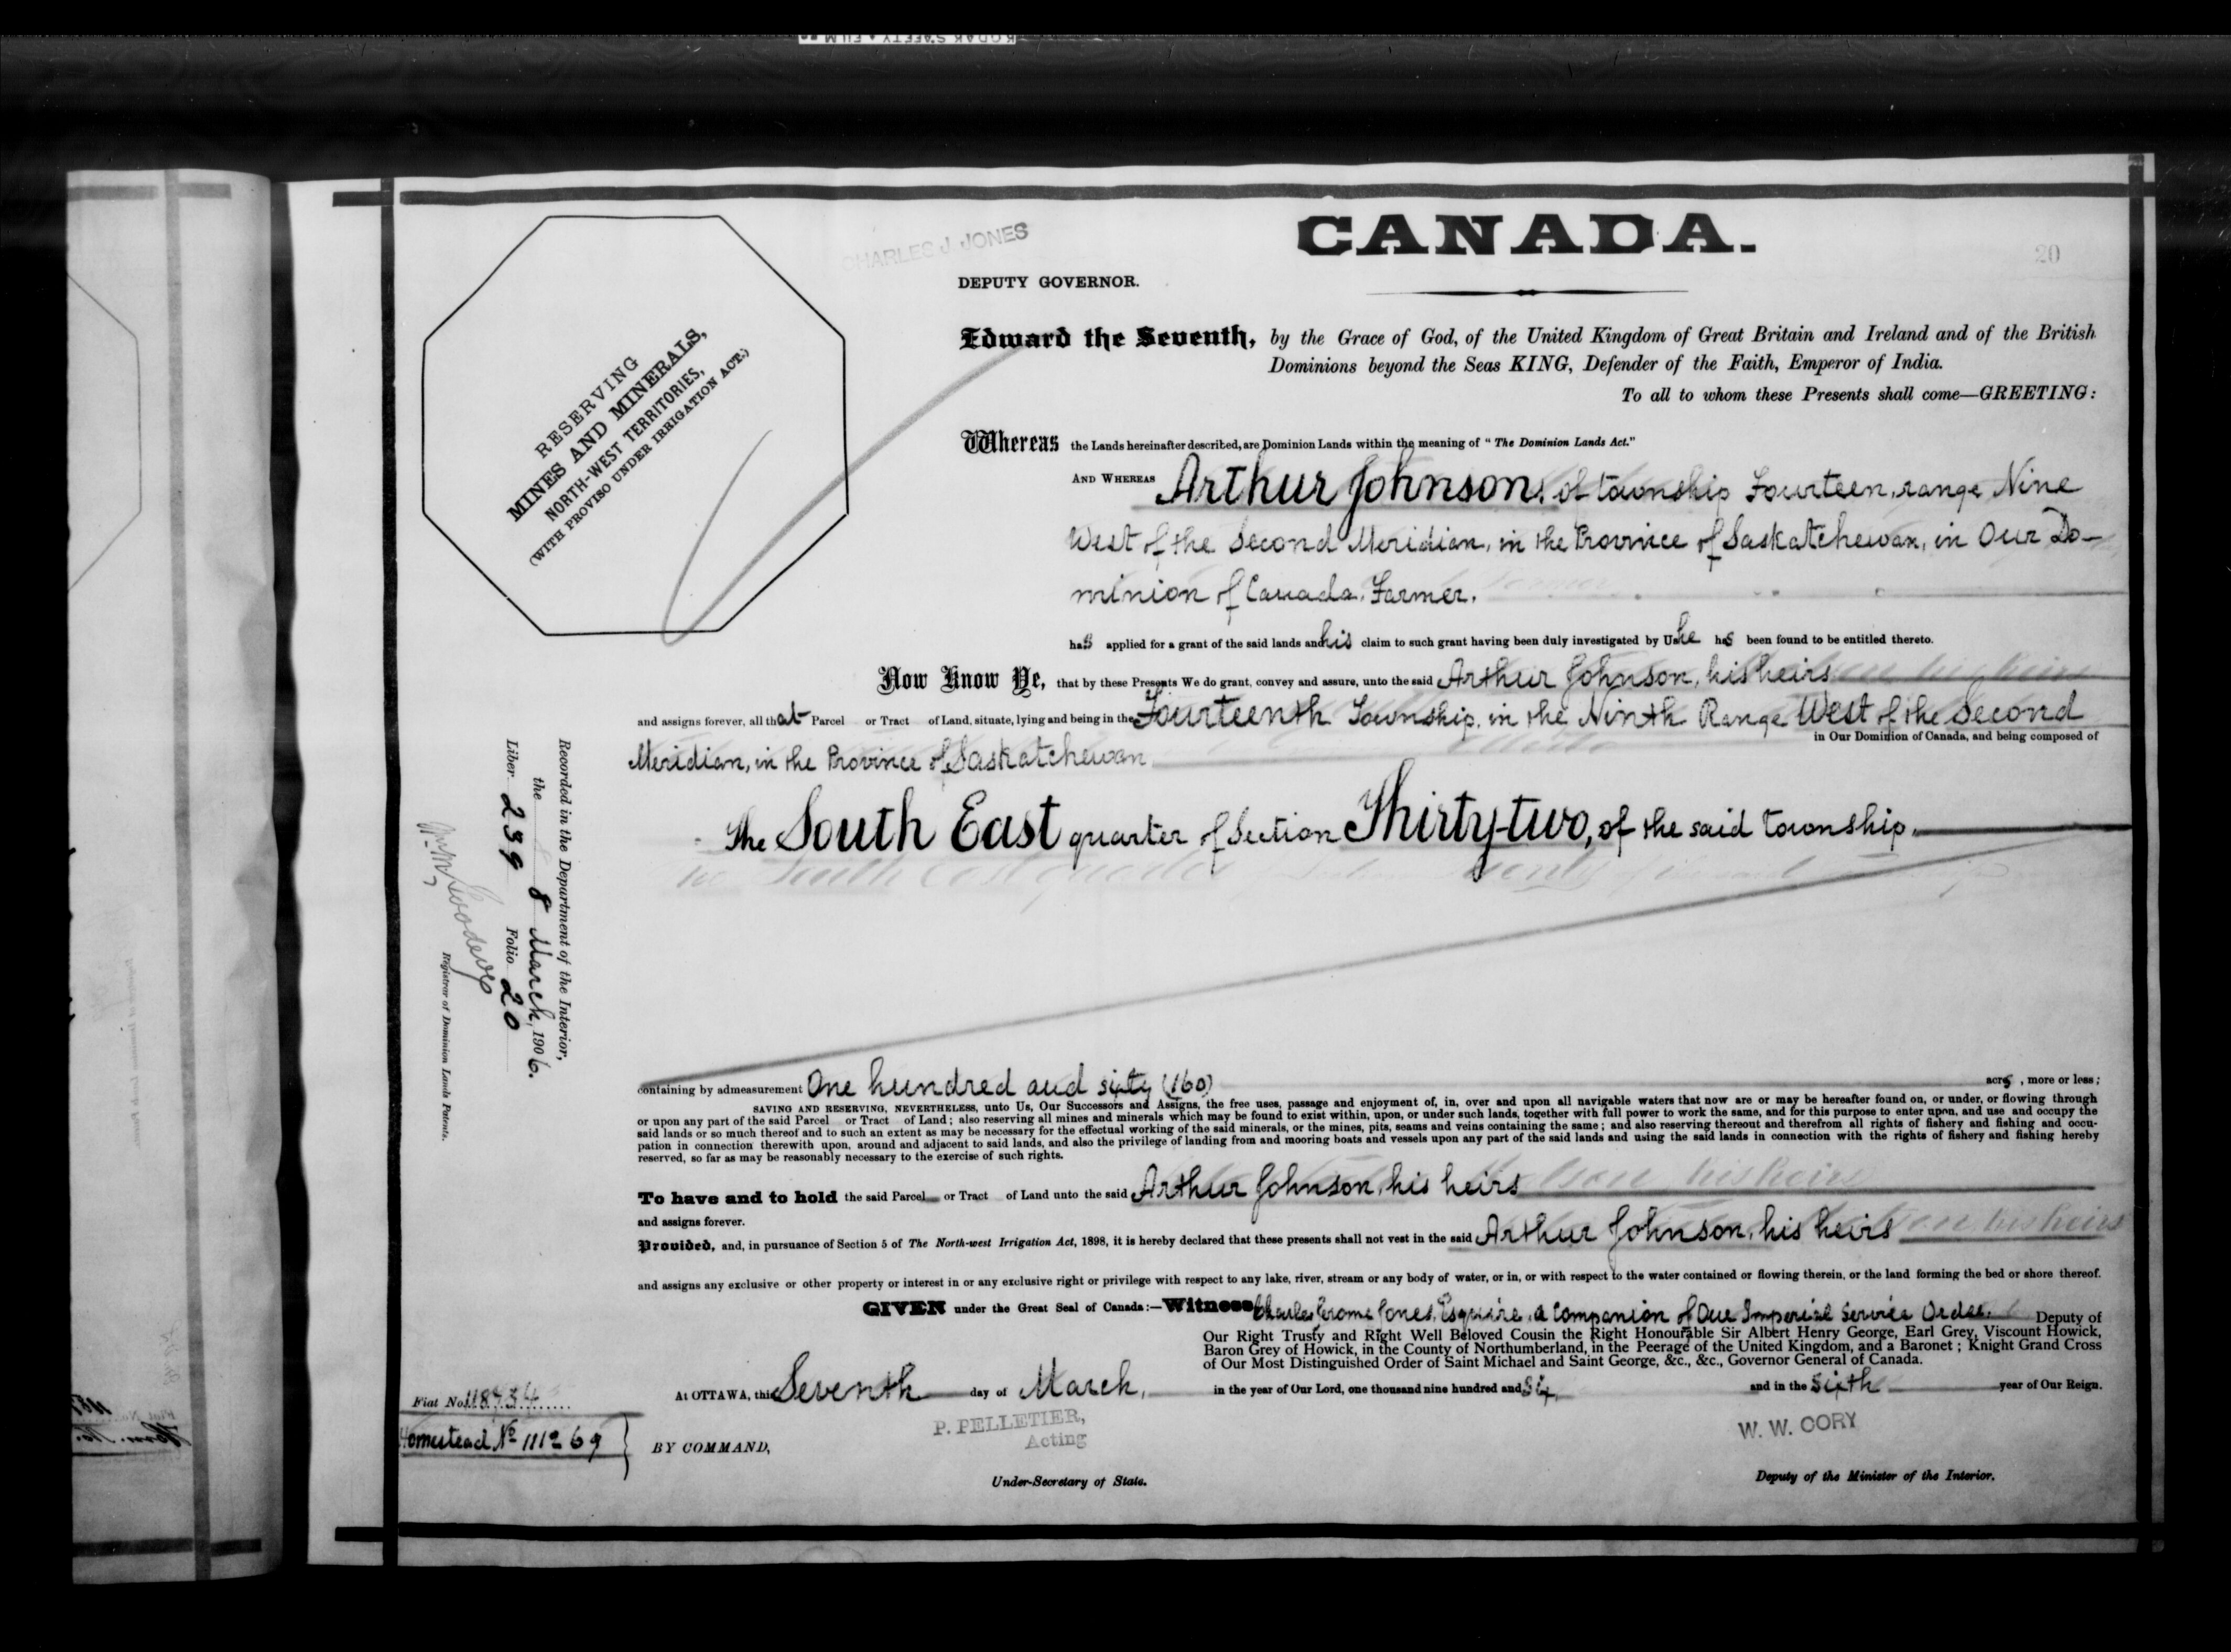 KODAK SAFETY FILM
CANADA.
20
CHARLES J JONES
DEPUTY GOVERNOR.
RESERVING
MINES AND MINERALS,
NORTH-WEST TERRITORIES,
(WITH PROVISO UNDER IRRIGATION ACT.)
Edward the Seventh, by the Grace of God, of the United Kingdom of Great Britain and Ireland and of the British
Dominions beyond the Seas KING, Defender of the Faith, Emperor of India.
To all to whom these Presents shall come—GREETING:
Whereas the Lands hereinafter described, are Dominion Lands within the meaning of "The Dominion Lands Act."
AND WHEREAS Arthur Johnson, of township Fourteen, range Nine
West of the Second Meridian, in the Province of Saskatchewan, in Our Do-
minion of Canada, Farmer.
has applied for a grant of the said lands and his claim to such grant having been duly investigated by Us he has been found to be entitled thereto.
Now Know Ye, that by these Presents We do grant, convey and assure, unto the said Arthur Johnson, his heirs
and assigns forever, all that Parcel or Tract of Land, situate, lying and being in the Fourteenth Township, in the Ninth Range West of the Second
in Our Dominion of Canada, and being composed of
Meridian, in the Province of Saskatchewan
The South East quarter of Section Thirty-two, of the said township.
Recorded in the Department of the Interior,
the 8 March, 1906.
Liber 239 Folio 20
Registrar of Dominion Lands Patents.
containing by admeasurement One hundred and sixty (160) acres, more or less;
SAVING AND RESERVING, NEVERTHELESS, unto Us, Our Successors and Assigns, the free uses, passage and enjoyment of, in, over and upon all navigable waters that now are or may be hereafter found on, or under, or flowing through
or upon any part of the said Parcel or Tract of Land; also reserving all mines and minerals which may be found to exist within, upon, or under such lands, together with full power to work the same, and for this purpose to enter upon, and use and occupy the
said lands or so much thereof and to such an extent as may be necessary for the effectual working of the said minerals, or the mines, pits, seams and veins containing the same; and also reserving thereout and therefrom all rights of fishery and fishing and occu-
pation in connection therewith upon, around and adjacent to said lands, and also the privilege of landing from and mooring boats and vessels upon any part of the said lands and using the said lands in connection with the rights of fishery and fishing hereby
reserved, so far as may be reasonably necessary to the exercise of such rights.
To have and to hold the said Parcel or Tract of Land unto the said Arthur Johnson, his heirs
and assigns forever.
Provided, and, in pursuance of Section 5 of The North-west Irrigation Act, 1898, it is hereby declared that these presents shall not vest in the said Arthur Johnson, his heirs
and assigns any exclusive or other property or interest in or any exclusive right or privilege with respect to any lake, river, stream or any body of water, or in, or with respect to the water contained or flowing therein, or the land forming the bed or shore thereof.
GIVEN under the Great Seal of Canada:—Witness Charles Jerome Jones, Esquire, a Companion of Our Imperial Service Order. Deputy of
Our Right Trusty and Right Well Beloved Cousin the Right Honourable Sir Albert Henry George, Earl Grey, Viscount Howick,
Baron Grey of Howick, in the County of Northumberland, in the Peerage of the United Kingdom, and a Baronet; Knight Grand Cross
of Our Most Distinguished Order of Saint Michael and Saint George, &c., &c., Governor General of Canada.
At OTTAWA, this Seventh day of March, in the year of Our Lord, one thousand nine hundred and Six and in the Sixth year of Our Reign.
Fiat No. 118734
Homestead No 111269
BY COMMAND,
P. PELLETIER,
Acting
Under-Secretary of State.
W. W. CORY
Deputy of the Minister of the Interior.